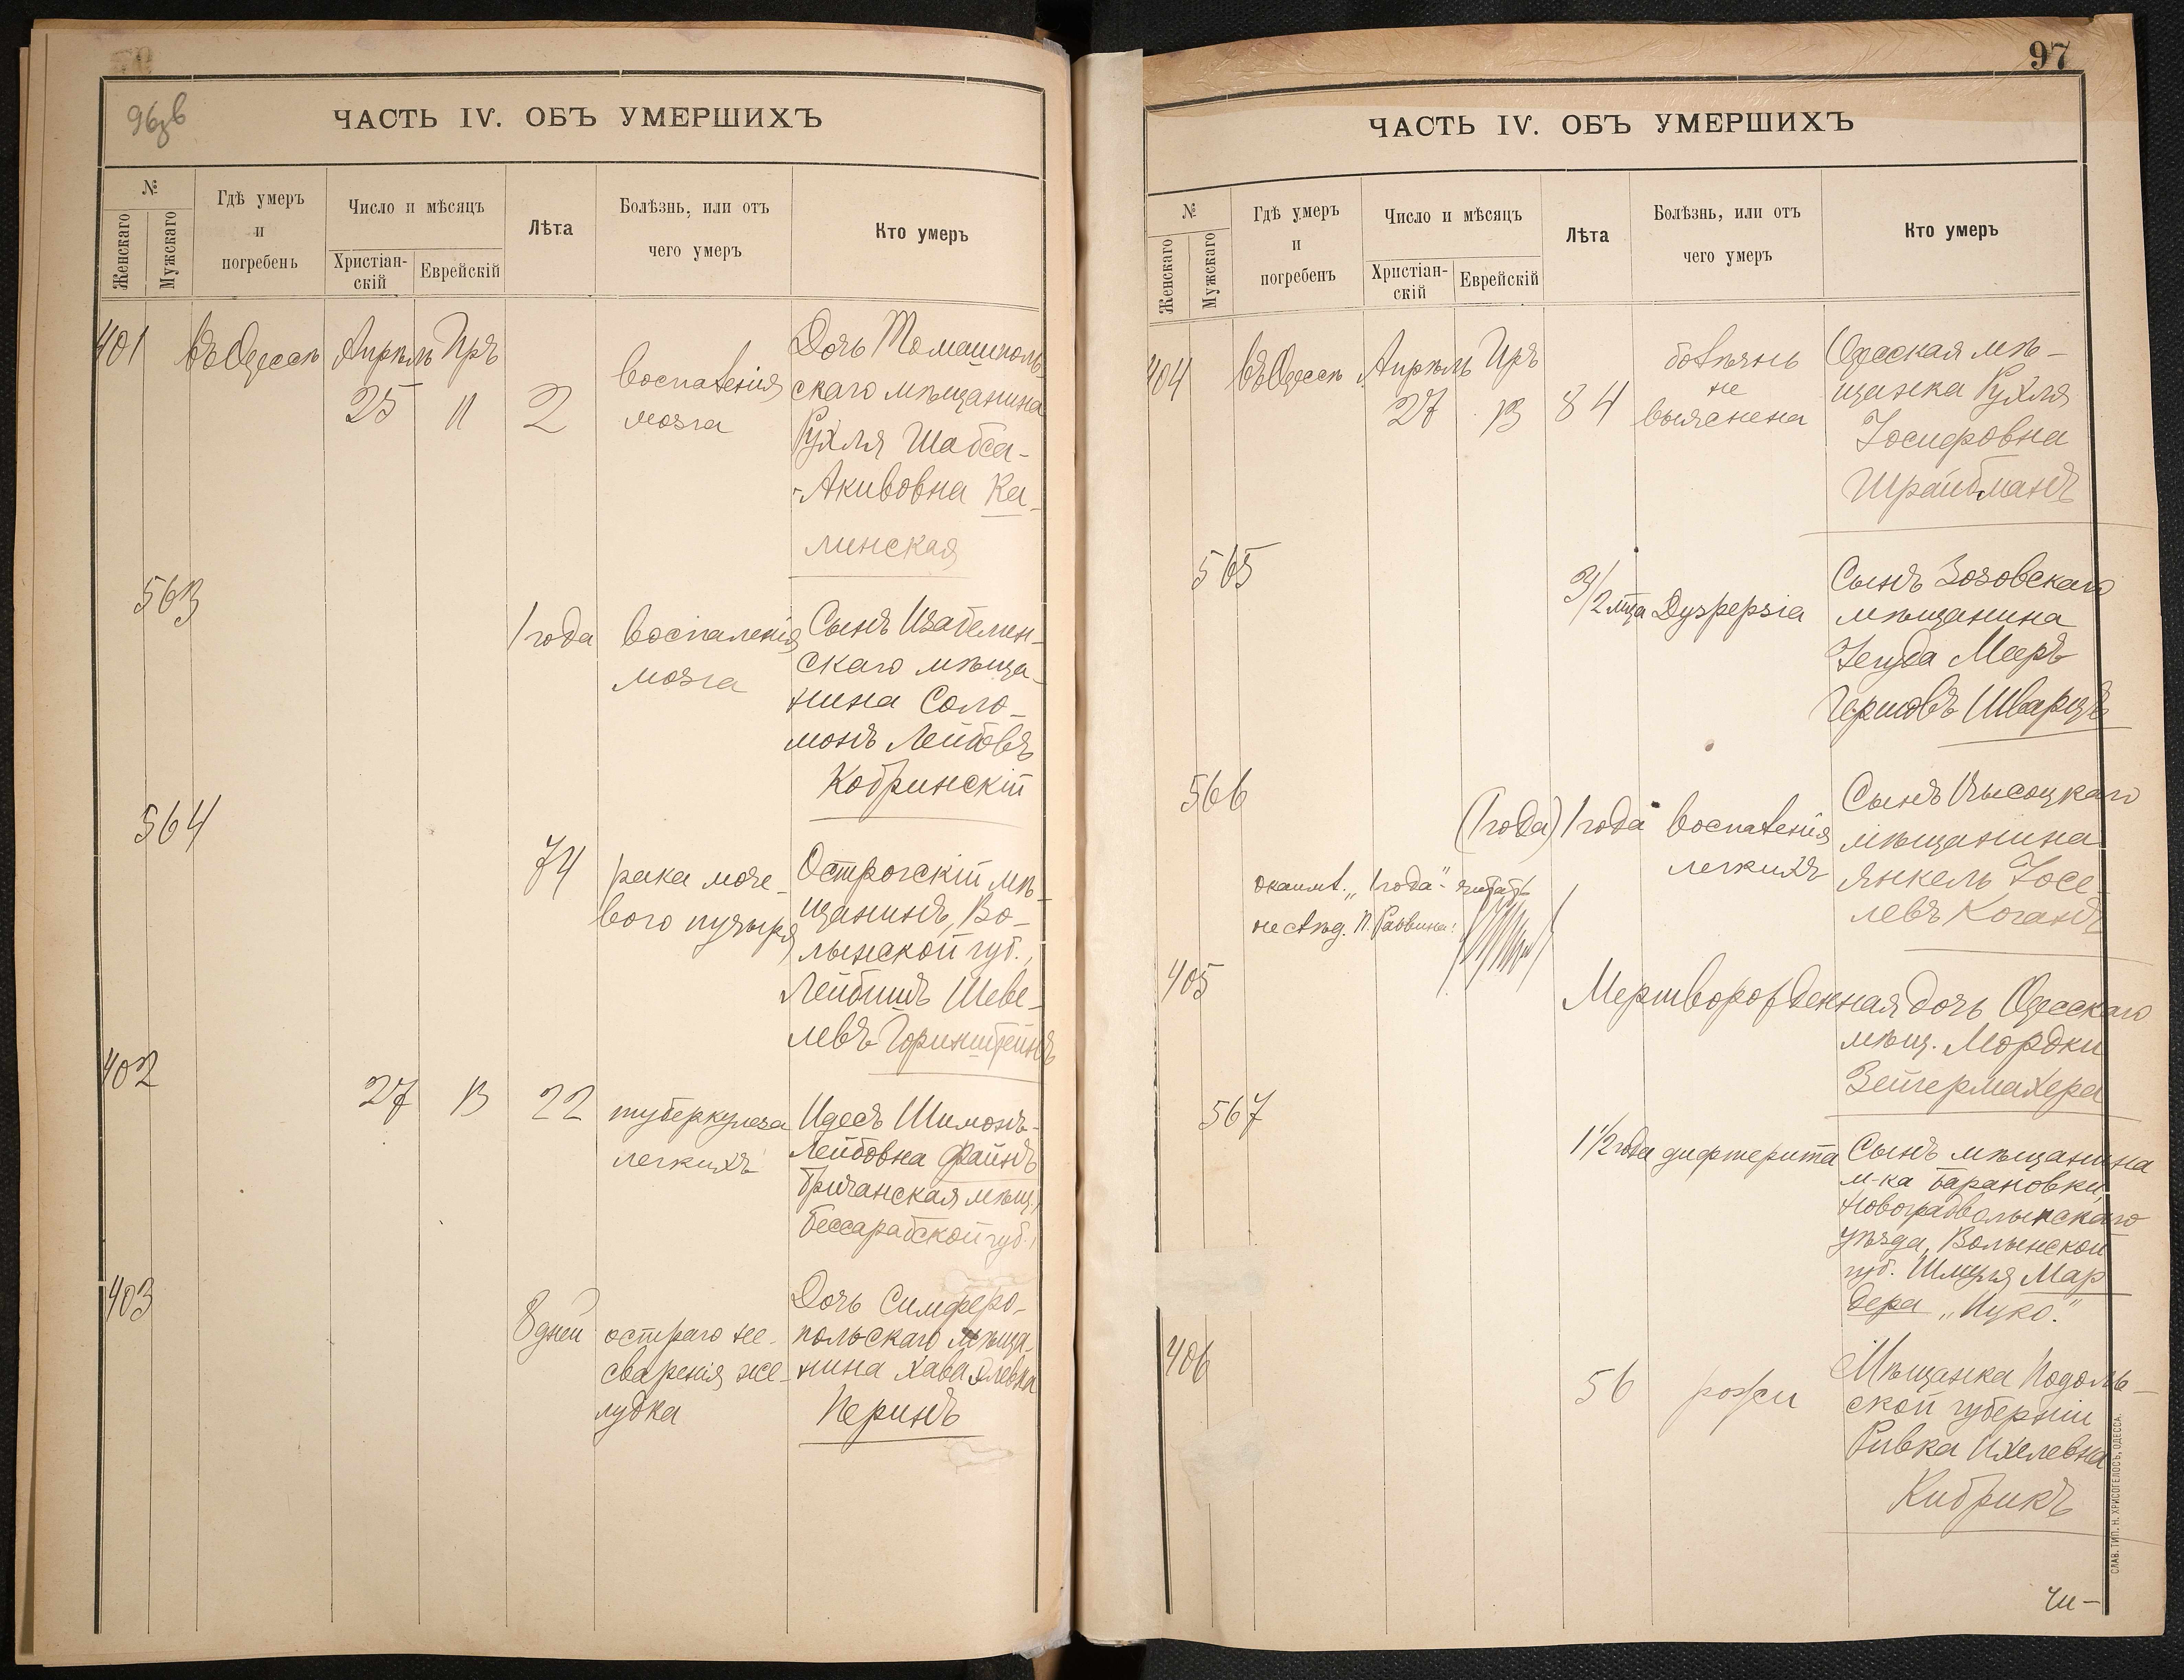 96 об
ЧАСТЬ IV. ОБЪ УМЕРШИХЪ
№
Женскаго
Мужскаго
Гдѣ умеръ
и
погребенъ
Число и мѣсяцъ
Христіан-
скій
Еврейскій
Лѣта
Болѣзнь, или отъ
чего умеръ
Кто умеръ
401 въ Одессѣ Апрѣль Иръ
25 11 2
воспаленія
мозга
Дочь Томашполь-
скаго мѣщанина
Рухля Шабса-
-Акивовна Ка-
линская
563
1 года
воспаленія
мозга
Сынъ Изабелин-
скаго мѣща-
нина Соло-
монъ Лейбовъ
Кобринскій
564
74
рака моче-
вого пузыря
Острогскій мѣ-
щанинъ, Во-
лынской губ.,
Лейбишъ Шеве-
левъ Горинштейнъ
402
27 13 22
туберкулеза
легкихъ
Идесъ Шимонъ-
Лейбовна Файнъ
Бричанская мѣщ.,
Бессарабской губ.,
403
8 дней
остраго не-
сваренія же-
лудка
Дочь Симферо-
польскаго мѣща-
нина Хава
Перинъ
97
ЧАСТЬ IV. ОБЪ УМЕРШИХЪ
№
Женскаго
Мужскаго
Гдѣ умеръ
и
погребенъ
Число и мѣсяцъ
Христіан-
скій
Еврейскій
Лѣта
Болѣзнь, или отъ
чего умеръ
Кто умеръ
404 въ Одессѣ Апрѣль Иръ
27 13 84
болѣзнь
не
выяснена
Одесская мѣ-
щанка Рухля
Іосифовна
Шрайбманъ
565
3/2 мца Dyspepsia
Сынъ
мѣщанина
Іегуда Мееръ
Гершовъ Шварцъ
566
(1 года) 1 года
воспаленія
легкихъ
Сынъ Высоцкаго
мѣщанина
Янкель Іосе-
левъ Коганъ
"1 года" читать
не слѣд.
405
Мертворожденная дочь Одесскаго
мѣщ. Мордки
Зейгермахера
567
1 1/2 года дифтерита
Сынъ мѣщанина
м-ка Барановки,
Новоградволынскаго
уѣзда, Волынской
губ. Шмуля Мар
дера „Нуко."
406
56 рожи
Мѣщанка Подоль-
ской губерніи
Ривка Ихелевна
Кибрикъ
Чи-
СЛАВ. ТИП. Н. ХРИСОГЕЛОСЪ, ОДЕССА.